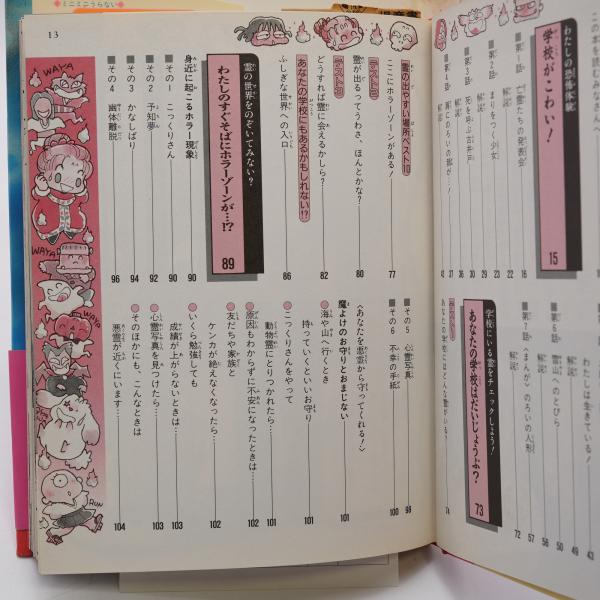 この本を読むみなさんへ
わたしの恐怖体験
学校がこわい!
15
第1話 亡霊たちの発表会
16
解説
22
第2話 まりをつく少女
23
解説
29
第3話 死を呼ぶ古井戸
30
解説
36
第4話 肩にのろいの獣が…!
37
解説
42
わたしは生きている!
43
解説
49
第6話 雪山へのとびら
50
解説
56
第7話〈まんが〉のろいの人形
57
解説
72
学校にいる霊をチェックしよう!
あなたの学校はだいじょうぶ?
73
テスト1
あなたの学校にはどんな霊がいる?
74
13
霊の出やすい場所ベスト10
ここにホラーゾーンがある!
77
テスト2
霊が出るってうわさ、ほんとかな?
80
テスト3
どうすれば霊に会えるかしら?
82
あなたの学校にもあるかもしれない!?
ふしぎな世界への入口
86
霊の世界をのぞいてみない?
わたしのすぐそばにホラーゾーンが…!?
89
身近に起こるホラー現象
90
その1 こっくりさん
90
その2 予知夢
92
その3 かなしばり
94
その4 幽体離脱
96
その5 心霊写真
98
その6 不幸の手紙
100
〈あなたを悪霊から守ってくれる!〉
魔よけのお守りとおまじない
101
海や山へ行くとき
持っていくといいお守り
101
こっくりさんをやって
動物霊にとりつかれたら…
101
原因もわからずに不安になったときは…
102
友だちや家族と
ケンカが絶えなくなったら…
102
いくら勉強しても
成績が上がらないときは…
103
心霊写真を見つけたら…
103
そのほかにも、こんなときは
悪霊が近くにいます…
104
WAYA
WAYA
WAYA
RUN
ミニミニうらない